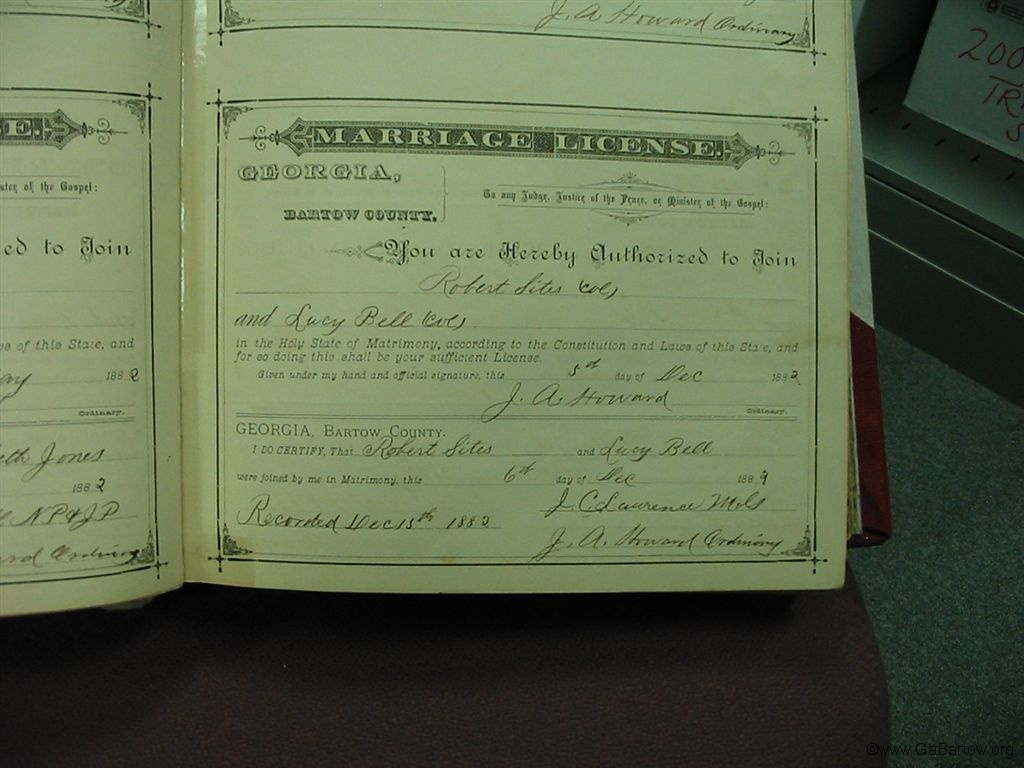 J. A. Howard Ordinary
E.
ster of the Gospel:
ed to Join
s of this State, and
ay 1882
Ordinary.
eth Jones
1882
NP & JP
ard Ordinary
MARRIAGE LICENSE.
GEORGIA,
BARTOW COUNTY.
To any Judge, Justice of the Peace, or Minister of the Gospel:
You are Hereby Authorized to Join
Robert Sites (Col)
and Lucy Bell (Col)
in the Holy State of Matrimony, according to the Constitution and Laws of this State, and
for so doing this shall be your sufficient License.
Given under my hand and official signature, this 5th day of Dec 1882
J. A. Howard Ordinary.
GEORGIA, BARTOW COUNTY.
I DO CERTIFY, That Robert Sites and Lucy Bell
were joined by me in Matrimony, this 6th day of Dec 1882
J. C. Lawrence
Recorded Dec 15th 1882
J. A. Howard Ordinary
200
TR
S
©www.GaBartow.org